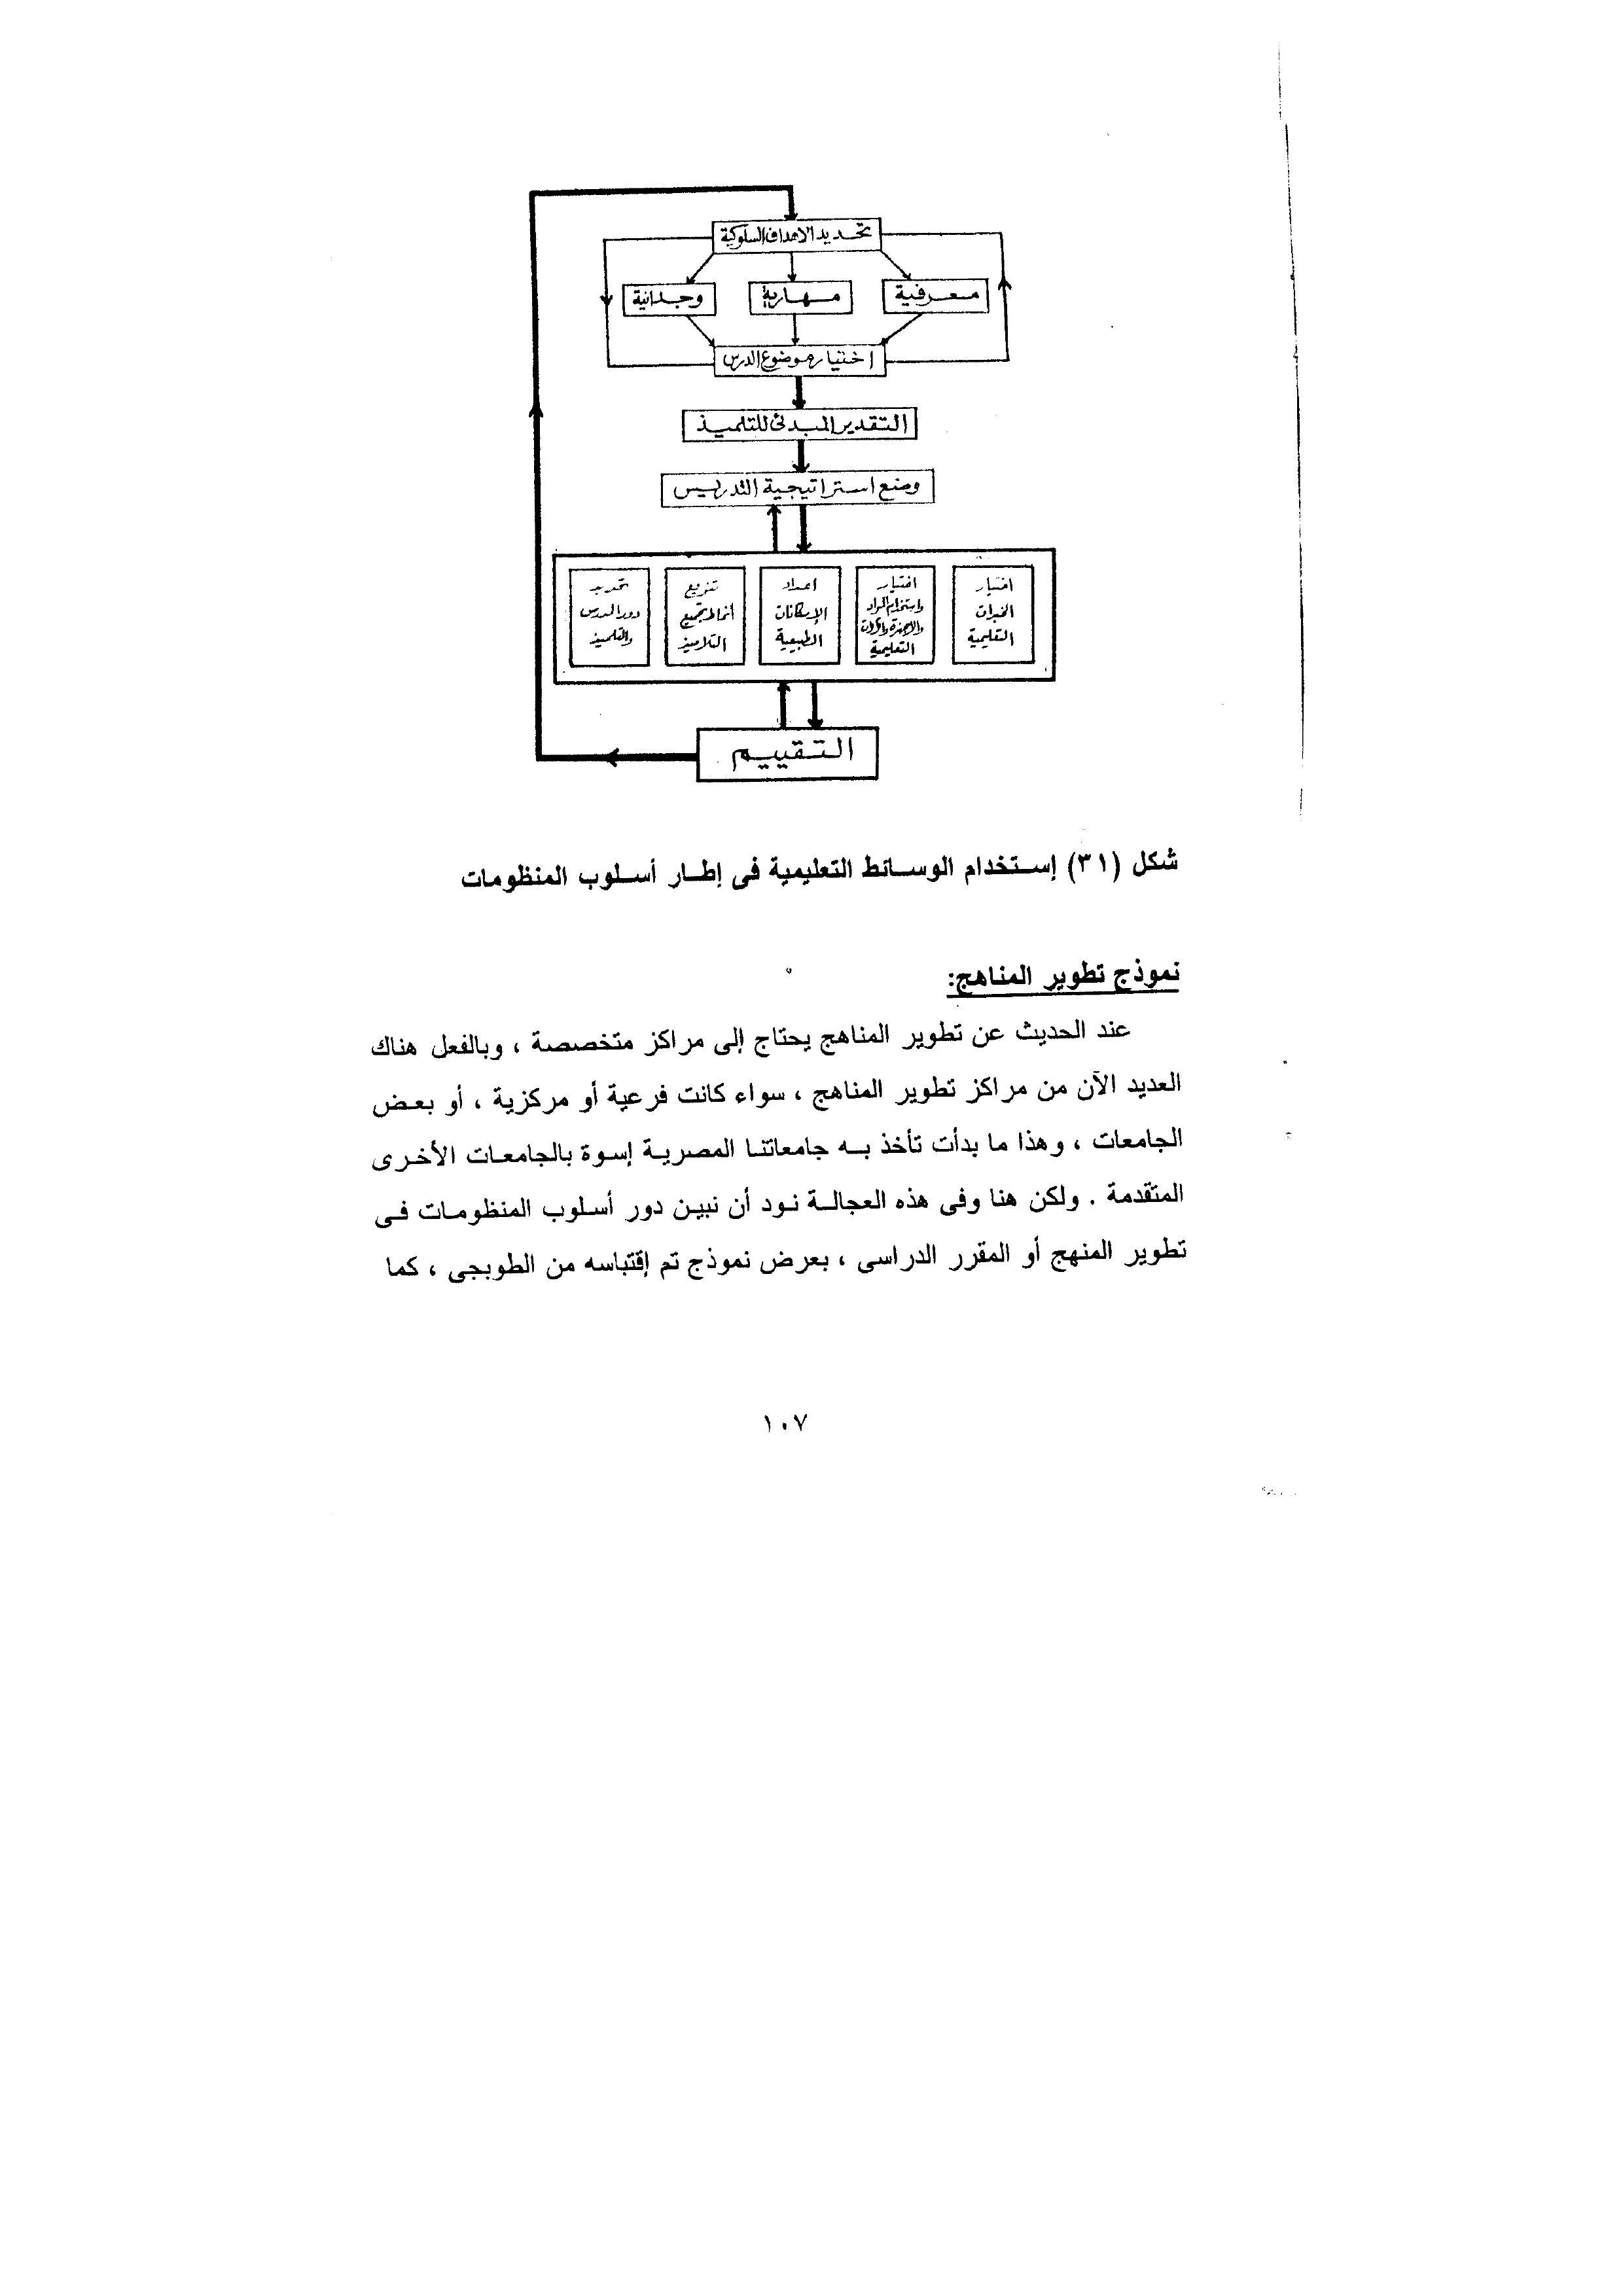 تحديد الاهداف السلوكية
معرفية
مهارية
وجدانية
اختيار موضوع الدرس
التقدير المبدئى للتلميذ
وضع استراتيجية التدريس
اختيار
الخبرات
التعليمية
اختيار
واستخدام المواد
والاجهزة والأدوات
التعليمية
اعداد
الإمكانات
الطبيعية
تنويع
أنماط تجميع
التلاميذ
تحديد
دور المدرس
والتلميذ
التقييم
شكل (٣١) إستخدام الوسائط التعليمية فى إطار أسلوب المنظومات
نموذج تطوير المناهج:
عند الحديث عن تطوير المناهج يحتاج إلى مراكز متخصصة ، وبالفعل هناك
العديد الآن من مراكز تطوير المناهج ، سواء كانت فرعية أو مركزية ، أو بعض
الجامعات ، وهذا ما بدأت تأخذ به جامعاتنا المصرية إسوة بالجامعات الأخرى
المتقدمة . ولكن هنا وفى هذه العجالة نود أن نبين دور أسلوب المنظومات فى
تطوير المنهج أو المقرر الدراسى ، بعرض نموذج تم إقتباسه من الطوبجى ، كما
١٠٧